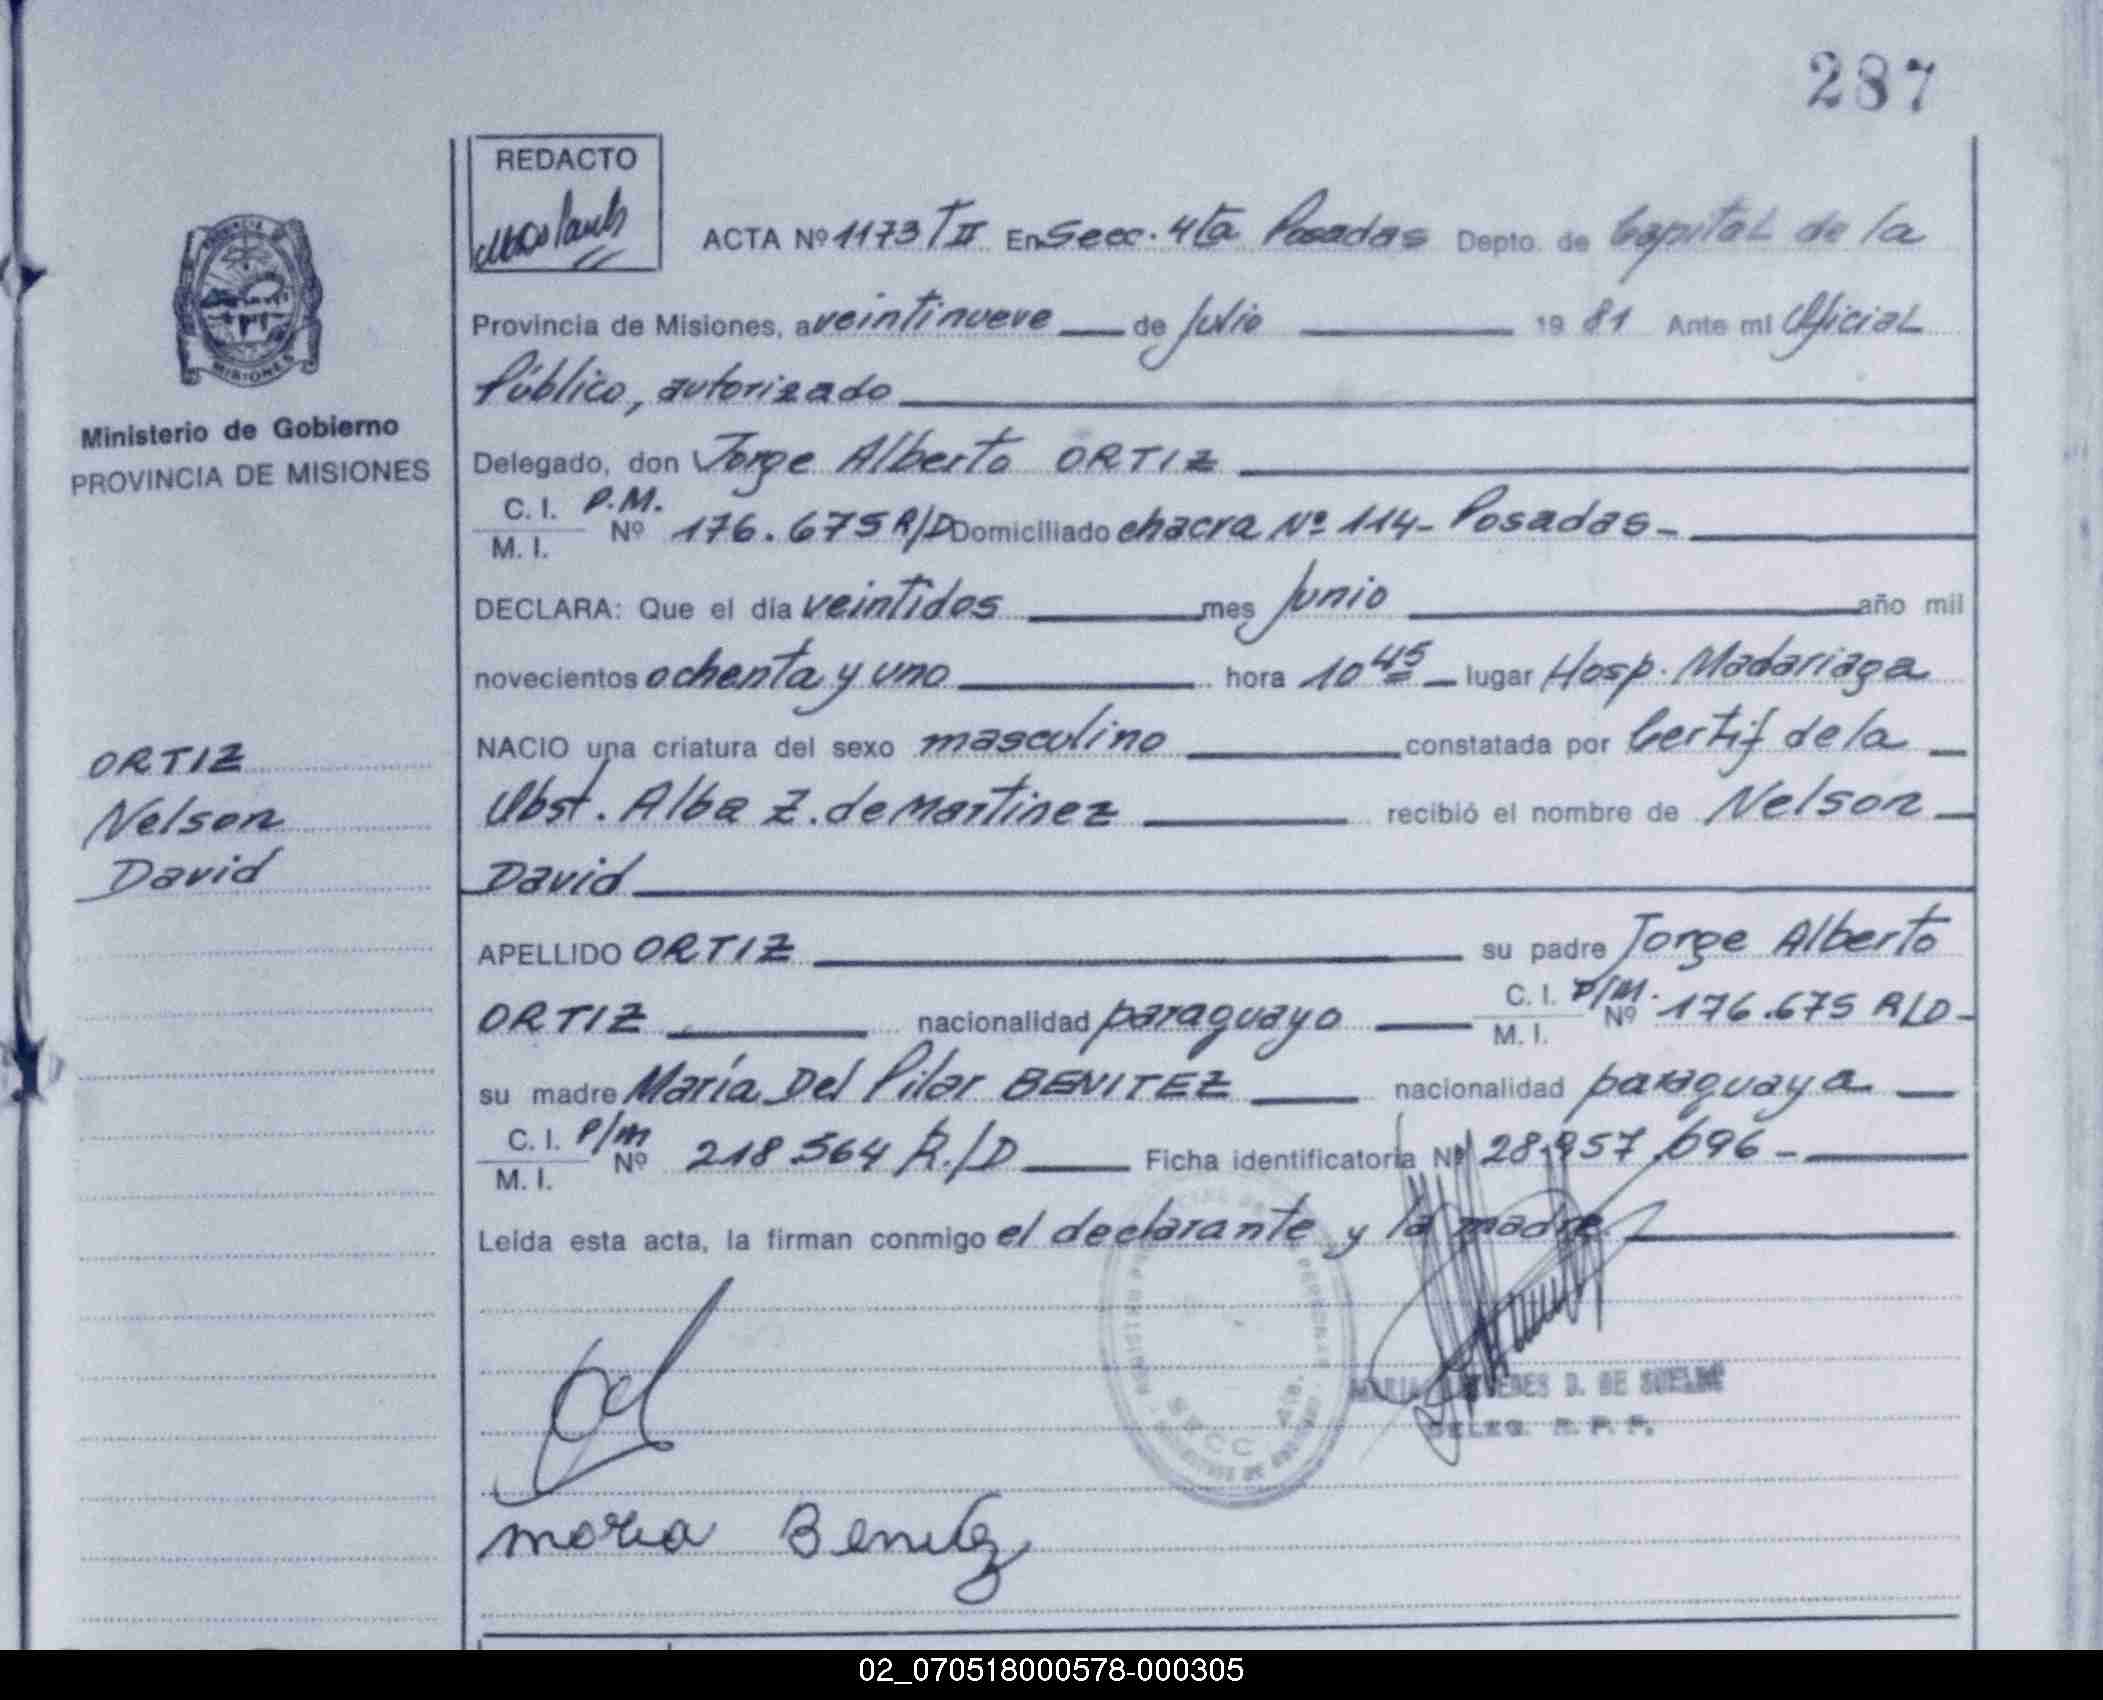 287
REDACTO
ACTA Nº 1173 T II En Secc. 4ta Posadas Depto. de Capital de la
Provincia de Misiones, a veintinueve de Julio 1981 Ante mi Oficial
Público, autorizado
Delegado, don Jorge Alberto ORTIZ
C. I. P.M.
M. I. Nº 176.675 R/D Domiciliado chacra Nº 114 - Posadas -
DECLARA: Que el día veintidos mes Junio año mil
novecientos ochenta y uno hora 10 45 lugar Hosp. Madariaga
NACIO una criatura del sexo masculino constatada por Certif de la
Obst. Alba Z. de Martinez recibió el nombre de Nelson
David
APELLIDO ORTIZ su padre Jorge Alberto
ORTIZ nacionalidad paraguayo C. I. P/M. M. I. Nº 176.675 R/D -
su madre María Del Pilar BENITEZ nacionalidad paraguaya
C. I. P/M M. I. Nº 218.564 R./D Ficha identificatoria Nº 28.957.696 -
Leída esta acta, la firman conmigo el declarante y la madre
DE
DELEG. R. P. P.
SECC 4ta.
maria Benitez
PROVINCIA DE MISIONES
Ministerio de Gobierno
PROVINCIA DE MISIONES
ORTIZ
Nelson
David
02_070518000578-000305